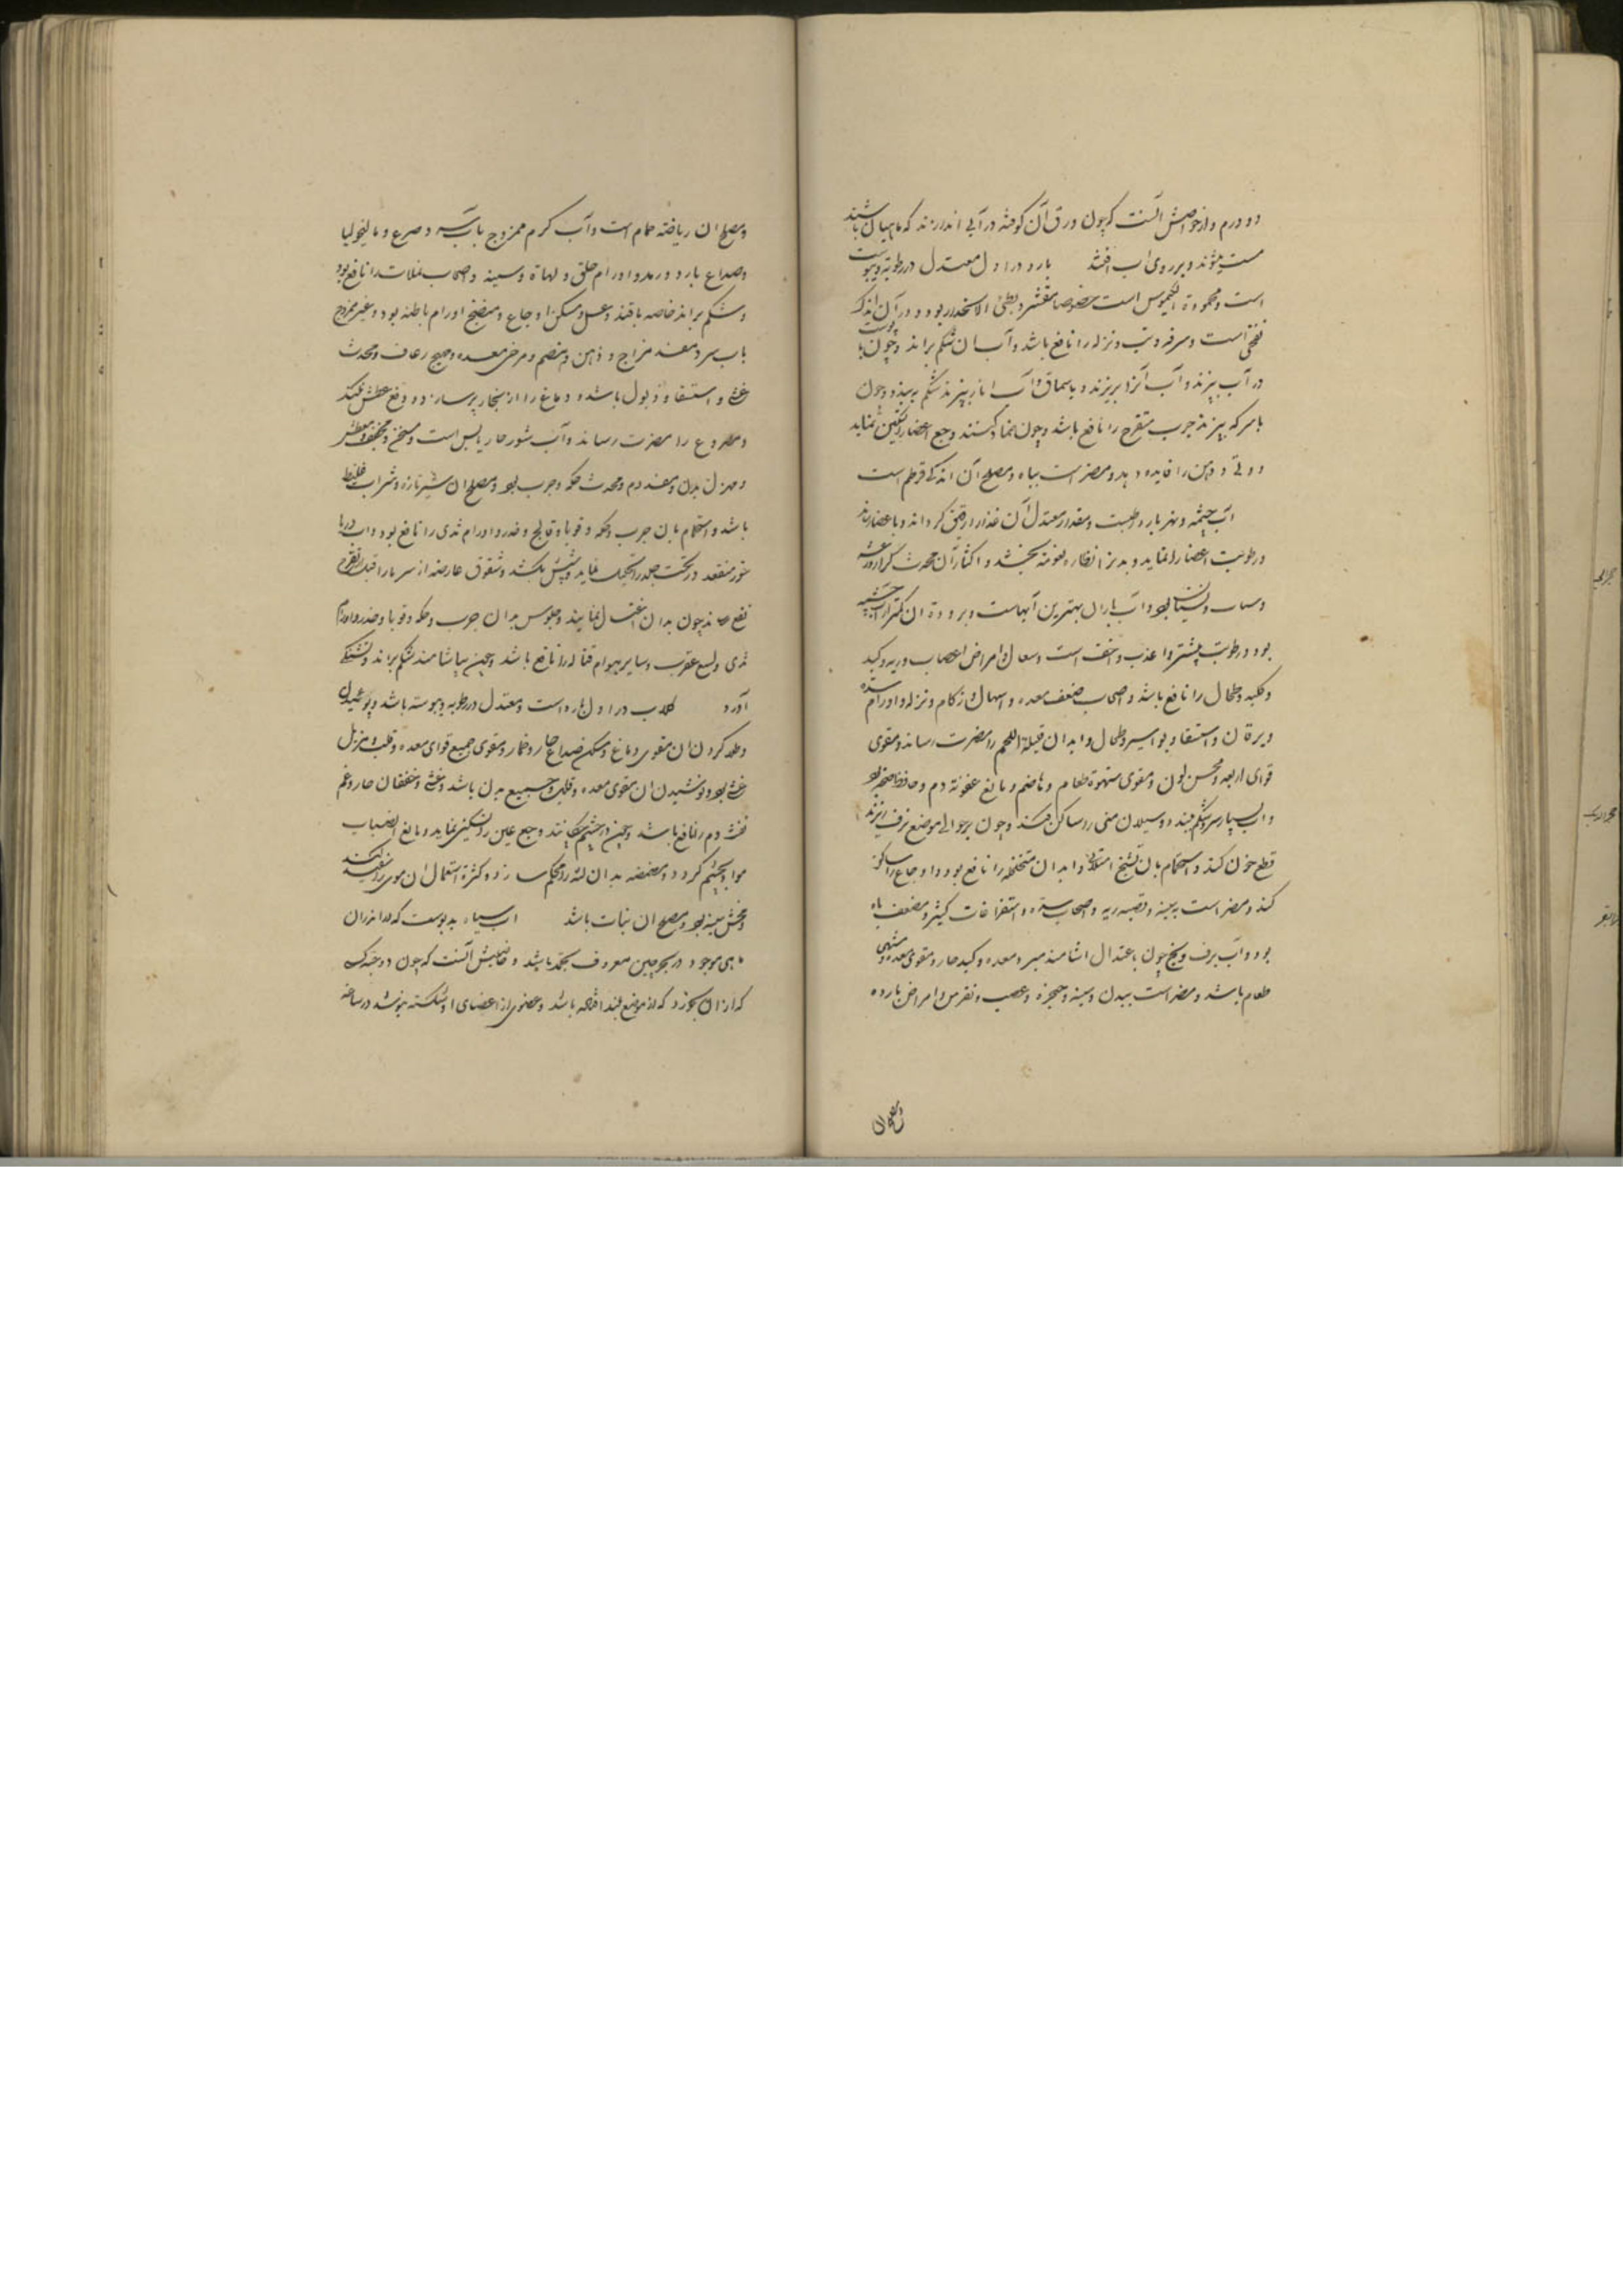 دو درم و از خواصش آنست که چون ورق آن کوفته در آبی اندازند که ماهیان باشند
مست شوند و بر روی آب افتند بارد در اول معتدل در رطوبة و یبوست
است و محمودة الکیموس است خصوصا مقشر و بطئ الانحدار بود و در آن اندک
نفخی است و سرفه و تب و نزله را نافع باشد و آب آن شکم براند و چون با پوست
در آب بپزند و آب آنرا بریزند و با سماق و آب انار بپزند شکم به بندد و چون
با سرکه بپزند جرب متقرح را نافع باشد و چون ضماد کنند وجع اعضا را تسکین نماید
و وثی و وهن را فایده دهد و مضر است بباه و مصلح آن اندکی قرطم است
آب چشمه و نهر بارد رطبست و مقدار معتدل آن غذا را رقیق گرداند و باعضا رساند
و رطوبت اعضا را نماید و بدن را نضاره و نعومة بخشد و اکثار آن محدث کزاز و رعشه
و سبات و نسیان بود و آب باران بهترین آبهاست و برودة آن کمتر از آب چشمه
بود و رطوبت بیشتر و اعذب و اخف است و سعال و امراض اعصاب و ریه و کبد
و کلیه و طحال را نافع باشد و اصحاب ضعف معده و اسهال و زکام و نزله و اورام سده
و یرقان و استسقا و بواسیر و طحال و ابدان قلیلة اللحم را مضرت رساند و مقوی
قوای اربعه و محسن لون و مقوی شهوة طعام و هاضم و مانع عفونة دم و
و آب بسیار سرد شکم بندد و سیلان منی را ساکن کند و چون بر حوالی موضع نزف ریزند
قطع خون کند و استحمام بآن تشنج امتلائی و ابدان متخلخله را نافع بود و اوجاع را ساکن
کند و مضر است بسینه و قصبه ریه و اصحاب سده و استفراغات کثیر و مضعف باه
بود و آب برف و یخ چون باعتدال آشامند مبرد معده و کبد حار و مقوی معده و مشهی
طعام باشد و مضر است ببدن و سینه و حنجره و عصب و نقرس و امراض بارده
و مصلح آن ریاضة حمام است و آب گرم ممزوج بآب سرد صرع و مالیخولیا
و صداع بارد و رمد و اورام حلق و لهاة و سینه و اصحاب را نافع بود
و شکم براند خاصه با قند و عسل و مسکن اوجاع و منضج اورام باطنه بود و غیر ممزوج
بآب سرد مفسد مزاج و ذهن و هضم و مرخی معده و مهیج رعاف و محدث
غشی و استسقا و ذبول باشد و دماغ را از بخار پر سازد و دفع عطش نکند
و مصروع را مضرت رساند و آب شور حار یابس است و مسخن و مجفف و معطش
و مهزل بدن و مفسد دم و محدث حکه و جرب بود و مصلح آن شیر تازه و شراب غلیظ
باشد و استحمام بآن جرب و حکه و قوبا و فالج و خدر و اورام ثدی را نافع بود و آب دریا
خون منعقد در تحت جلد را تحلیل نماید و شپش بکشد و شقوق عارضه از سرما را قبل از تقرح
نفع رساند چون بدان اغتسال نمایند و جلوس بدان جرب و حکه و قوبا و خدر و اورام
ثدی و لسع عقرب و سایر هوام قتاله را نافع باشد و چون بیاشامند شکم براند و تشنگی
آورد گلاب در اول بارد است و معتدل در رطوبه و یبوسته باشد و بوئیدن
و طلا کردن آن مقوی دماغ و مسکن صداع حار و خمار و مقوی جمیع قوای معده و قلب و مزیل
غشی بود و نوشیدن آن مقوی معده و قلب و جمیع بدن باشد و غشی و خفقان حار و غم
نفث دم را نافع باشد و چون در چشم چکانند وجع عین را تسکین نماید و مانع انصباب
مواد بچشم گردد و مضمضه بدان لثه را محکم سازد و کثرة استعمال آن موی را سفید کند
و مخشن سینه بود و مصلح آن نبات باشد آب سیاه بدبوست که
ماهی موجود در بحر چین معروف باشد و خاصیتش آنست که چون دو حبه کسی
که از آن بخورد که از موضع بلند افتاده باشد و عضوی از اعضای او شکسته بود در ساعة